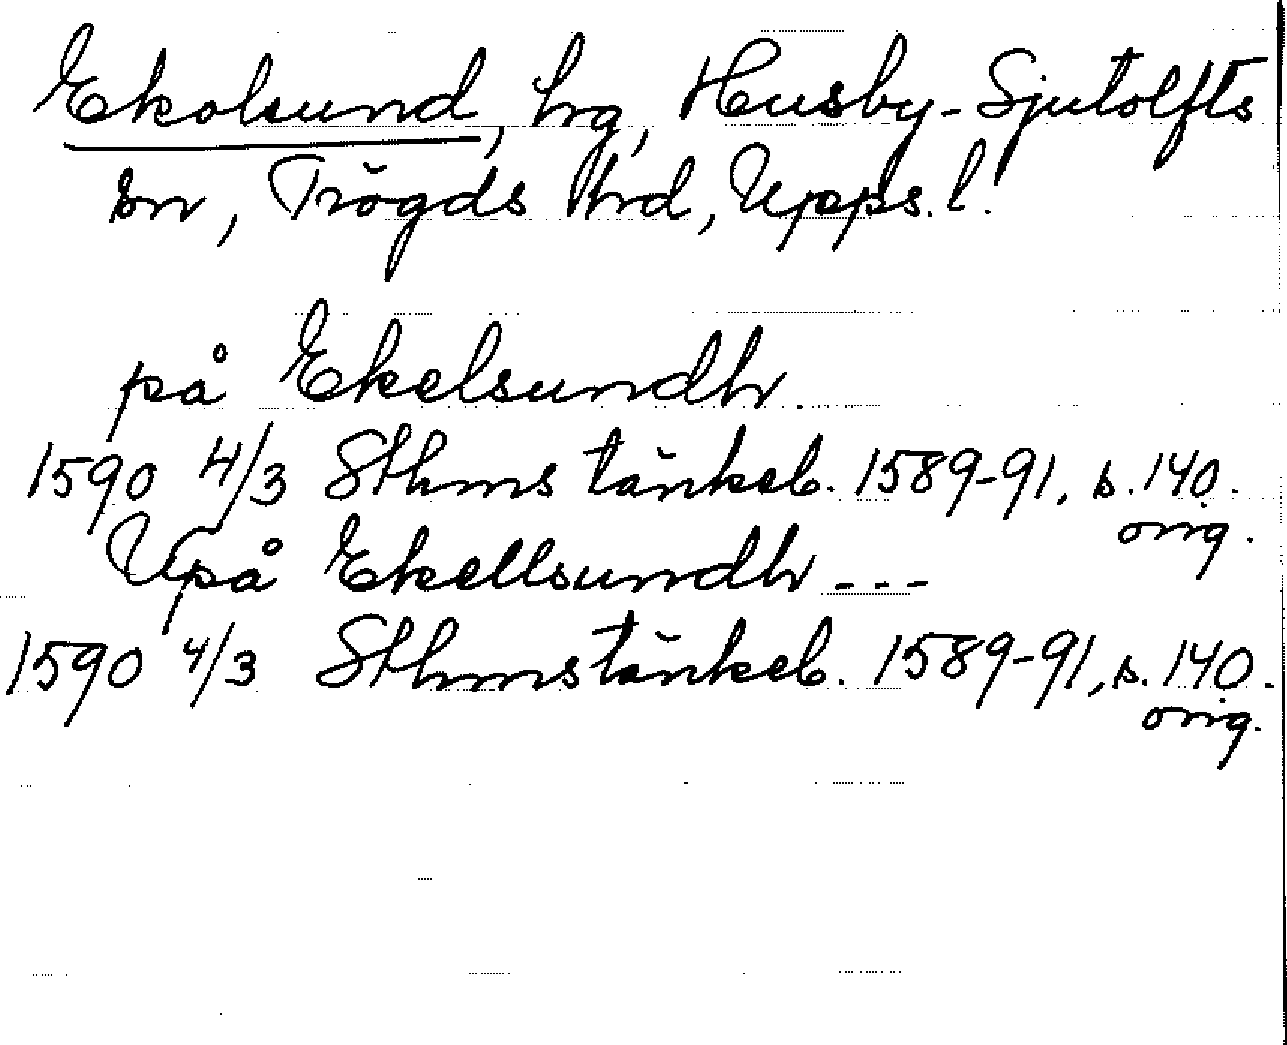 Ekolsund, hg, Husby-Sjutolfts
sn, Trögds hrd, Upps. l.
på Ekelsundh
1590 4/3 Sthms tänkeb. 1589-91, s. 140.
orig.
Upå Ekellsundh ---
1590 4/3 Sthms tänkeb. 1589-91, s. 140.
orig.